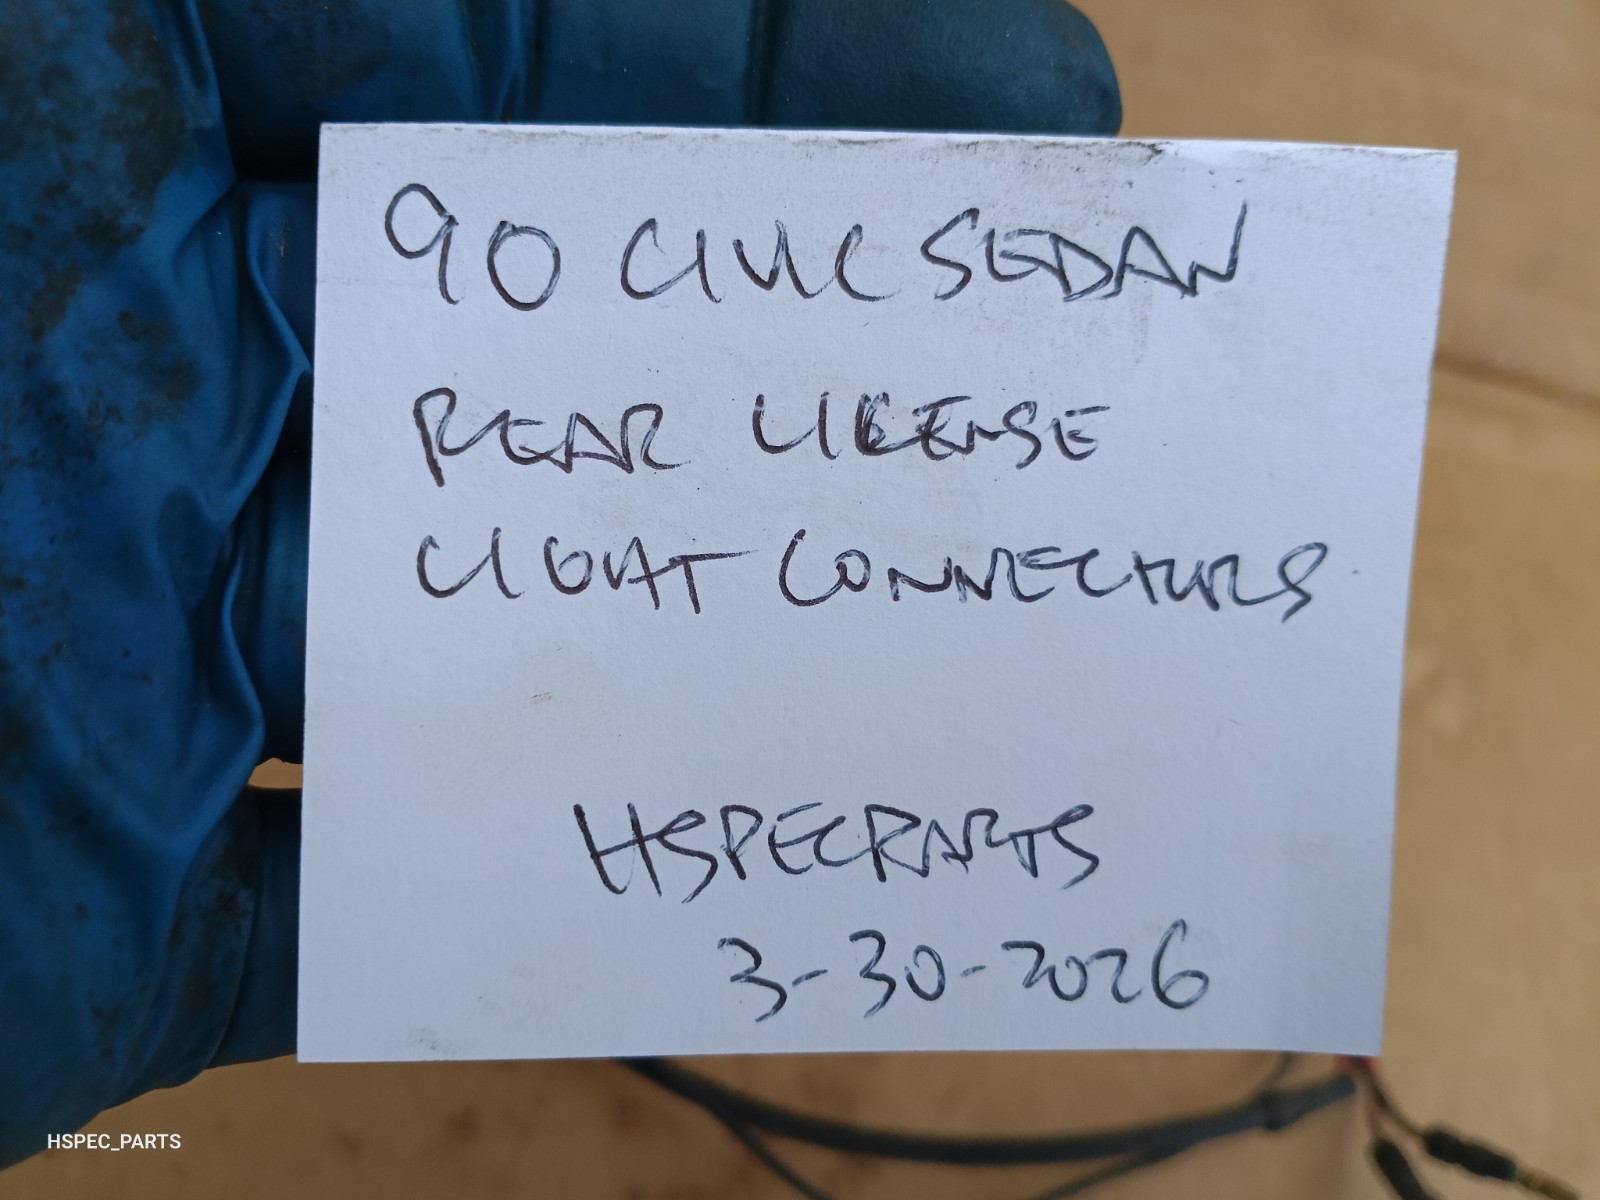 90 CIVIC SEDAN
REAR LICENSE
LIGHT CONNECTORS
HSPECPARTS
3-30-2026
HSPEC_PARTS